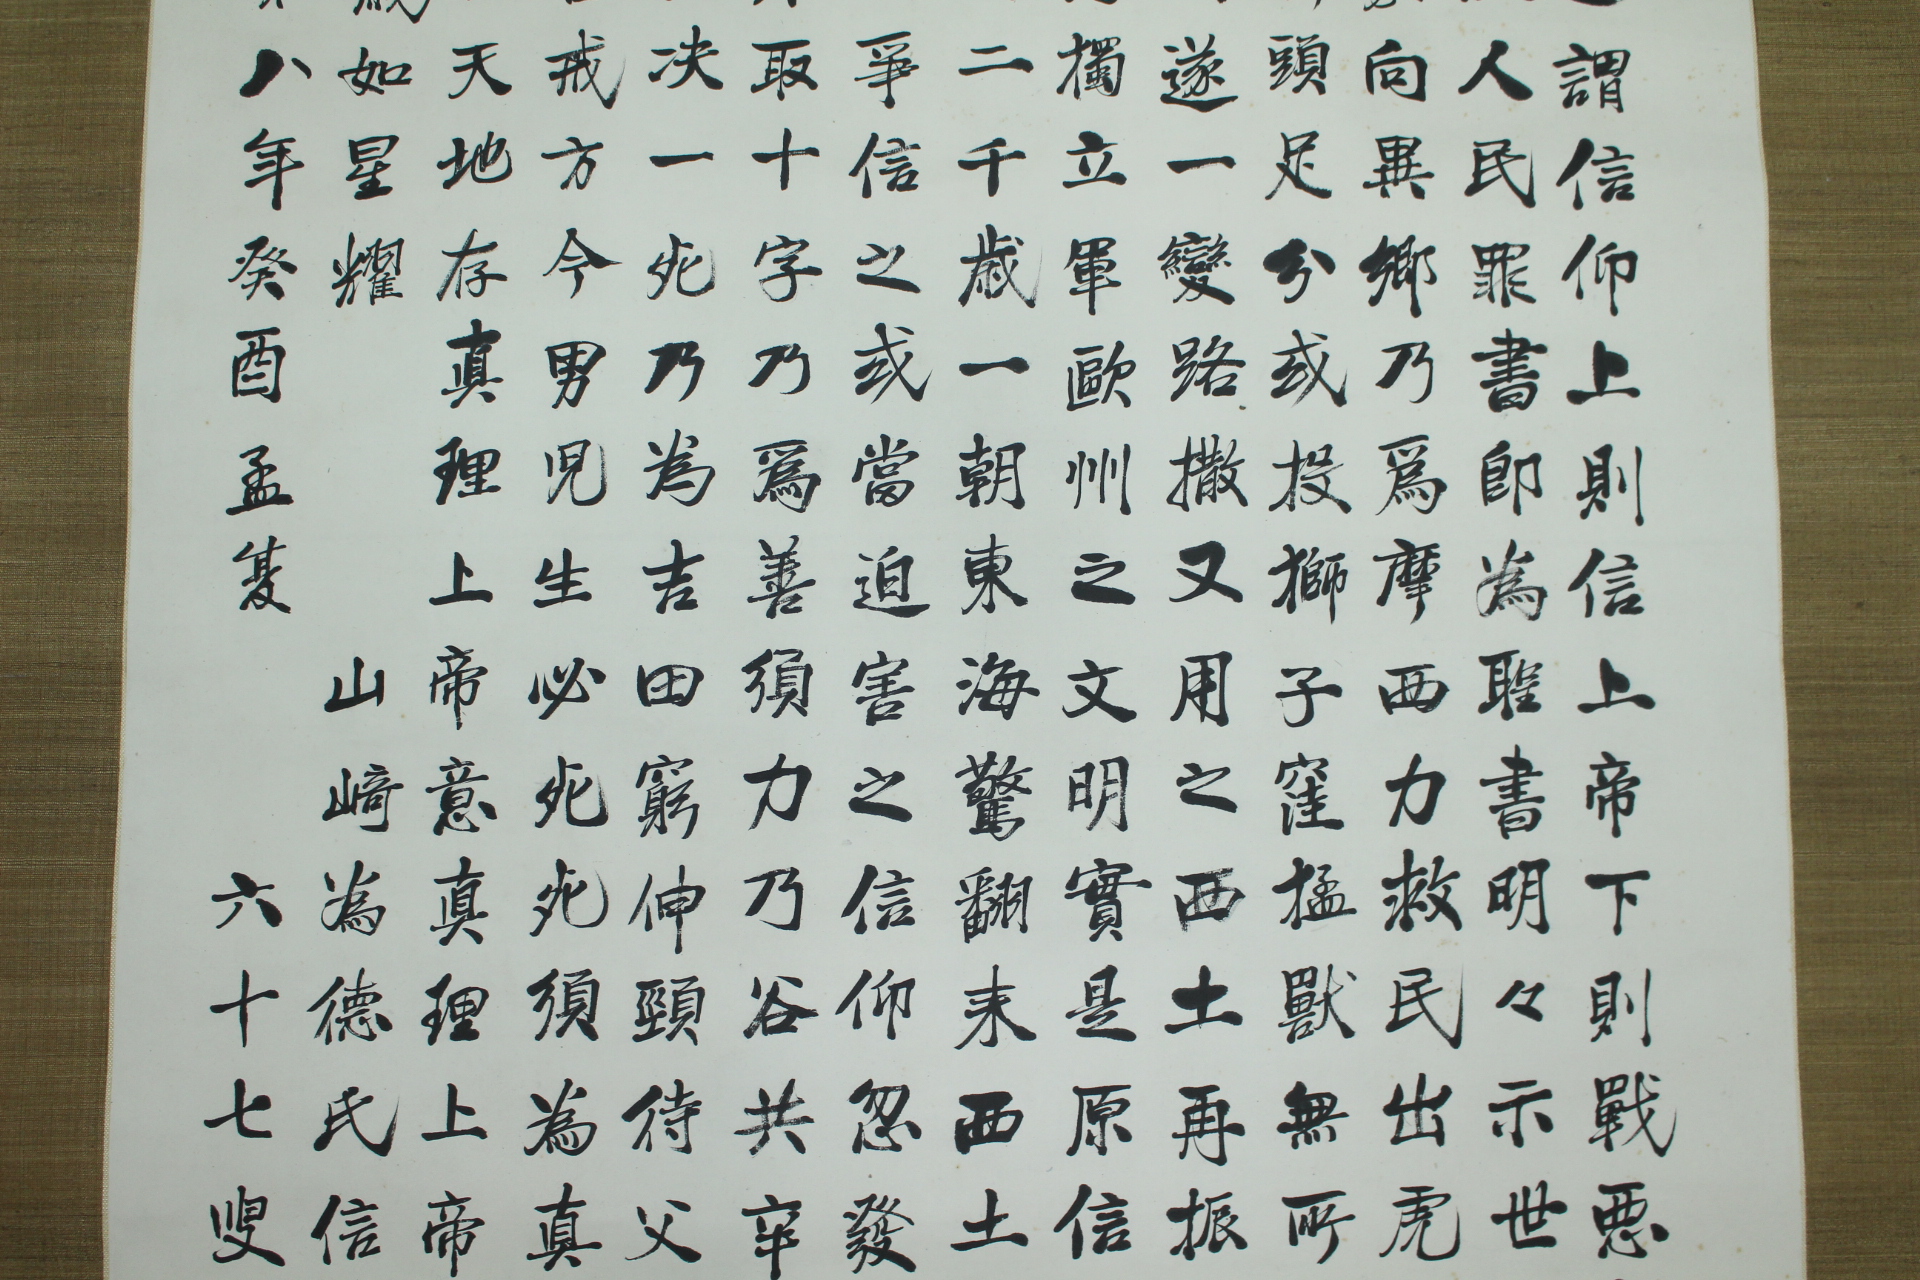 謂信仰上則信上帝下則戰惡
人民罪書即為聖書明々示世
向異鄉乃爲摩西力救民出虎
頭足分或投獅子窪猛獸無所
遂一變路撒又用之西土再振
獨立軍歐州之文明實是原信
二千歳一朝東海驚翻来西土
爭信之或當迫害之信仰忽發
取十字乃爲善須力乃谷共幸
决一死乃為吉田窮伸頸待父
戒方今男児生必死死須為真
天地存真理上帝意真理上帝
如星耀 山﨑為德氏信
八年癸酉孟夏 六十七叟